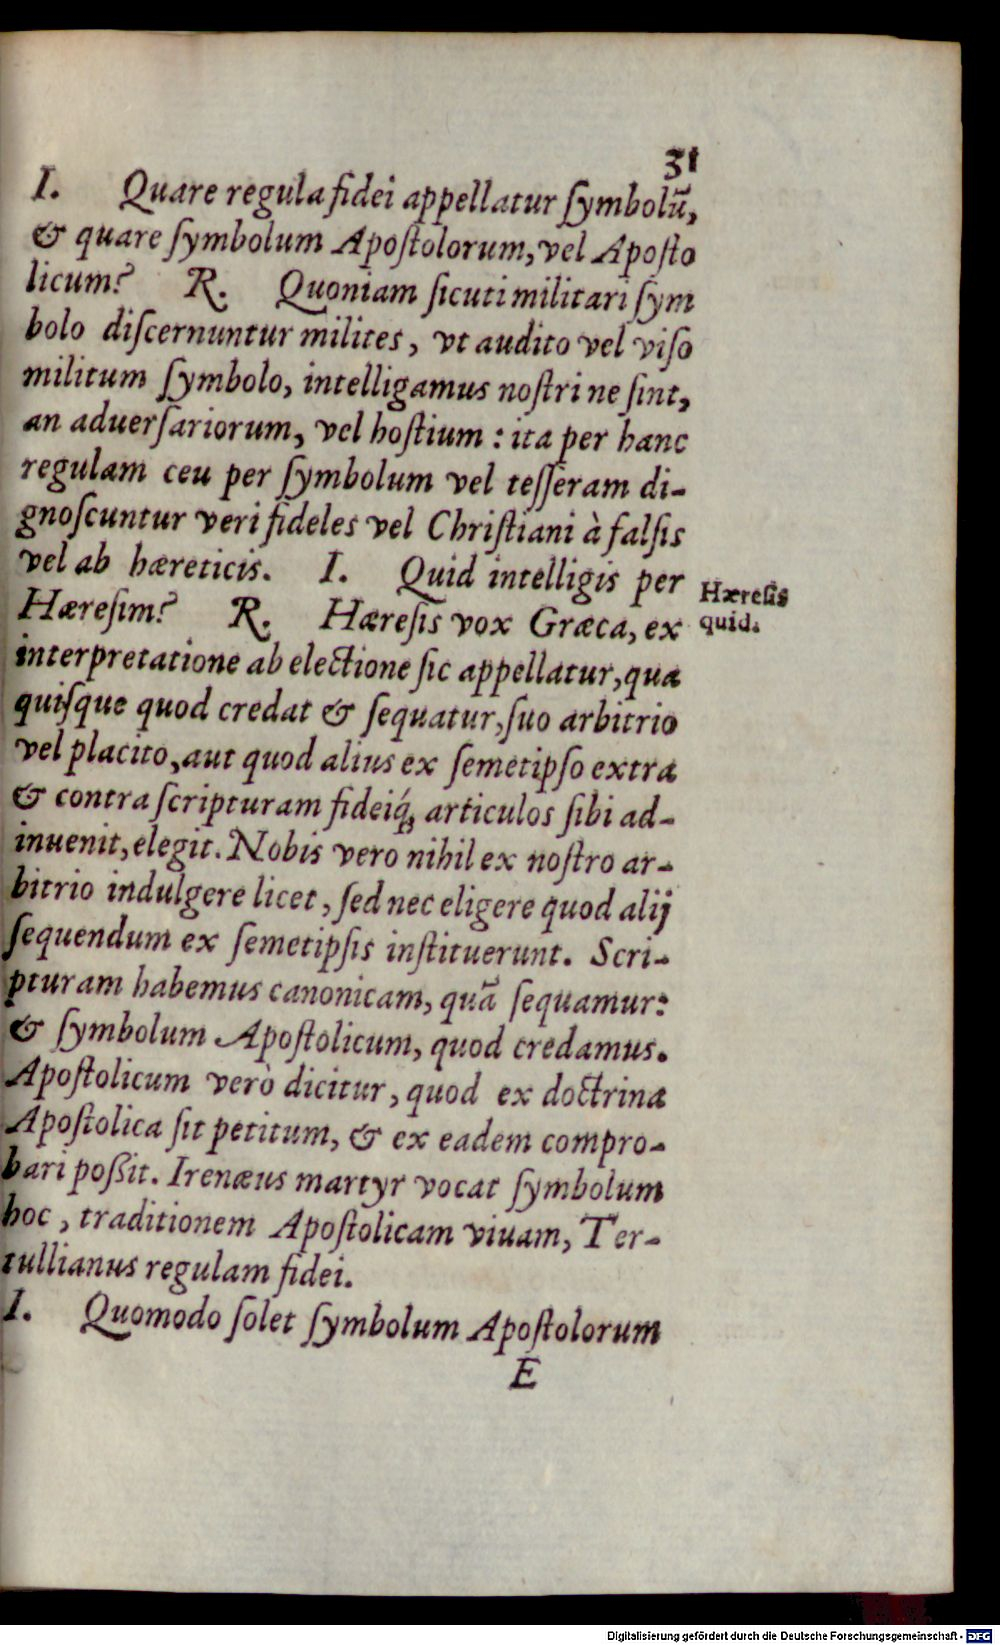 31
I. Quare regula fidei appellatur ſymbolū,
& quare ſymbolum Apoſtolorum, vel Apoſto
licum? R. Quoniam ſicuti militari ſym
bolo diſcernuntur milites, vt audito vel viſo
militum ſymbolo, intelligamus noſtri ne ſint,
an aduerſariorum, vel hoſtium: ita per hanc
regulam ceu per ſymbolum vel teſſeram di-
gnoſcuntur veri fideles vel Chriſtiani à falſis
vel ab hæreticis. I. Quid intelligis per
Hæreſim? R. Hæreſis vox Græca, ex
Hæreſis
quid.
interpretatione ab electione ſic appellatur, qua
quiſque quod credat & ſequatur, ſuo arbitrio
vel placito, aut quod alius ex ſemetipſo extra
& contra ſcripturam fideiq́; articulos ſibi ad-
inuenit, elegit. Nobis vero nihil ex noſtro ar-
bitrio indulgere licet, ſed nec eligere quod alij
ſequendum ex ſemetipſis inſtituerunt. Scri-
pturam habemus canonicam, quā ſequamur:
& ſymbolum Apoſtolicum, quod credamus.
Apoſtolicum verò dicitur, quod ex doctrina
Apoſtolica ſit petitum, & ex eadem compro-
bari poßit. Irenæus martyr vocat ſymbolum
hoc, traditionem Apoſtolicam viuam, Ter-
tullianus regulam fidei.
I. Quomodo ſolet ſymbolum Apoſtolorum
E
Digitalisierung gefördert durch die Deutsche Forschungsgemeinschaft - DFG